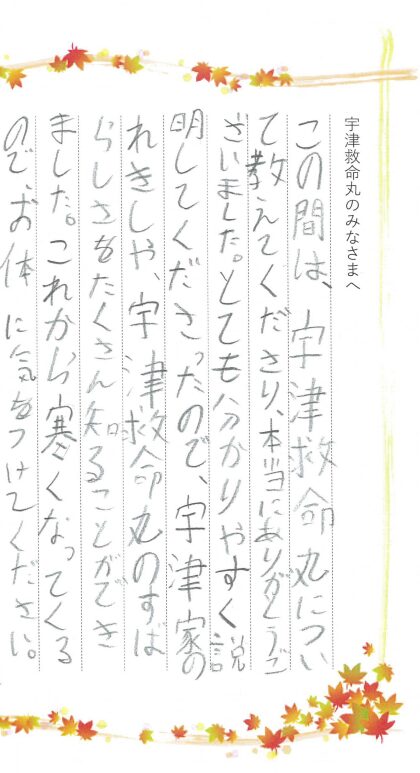 宇津救命丸のみなさまへ
この間は、宇津救命丸につい
て教えてくださり、本当にありがとうご
ざいました。とても分かりやすく説
明してくださったので、宇津家の
れきしや、宇津救命丸のすば
らしさをたくさん知ることができ
ました。これから寒くなってくる
ので、お体に気をつけてください。